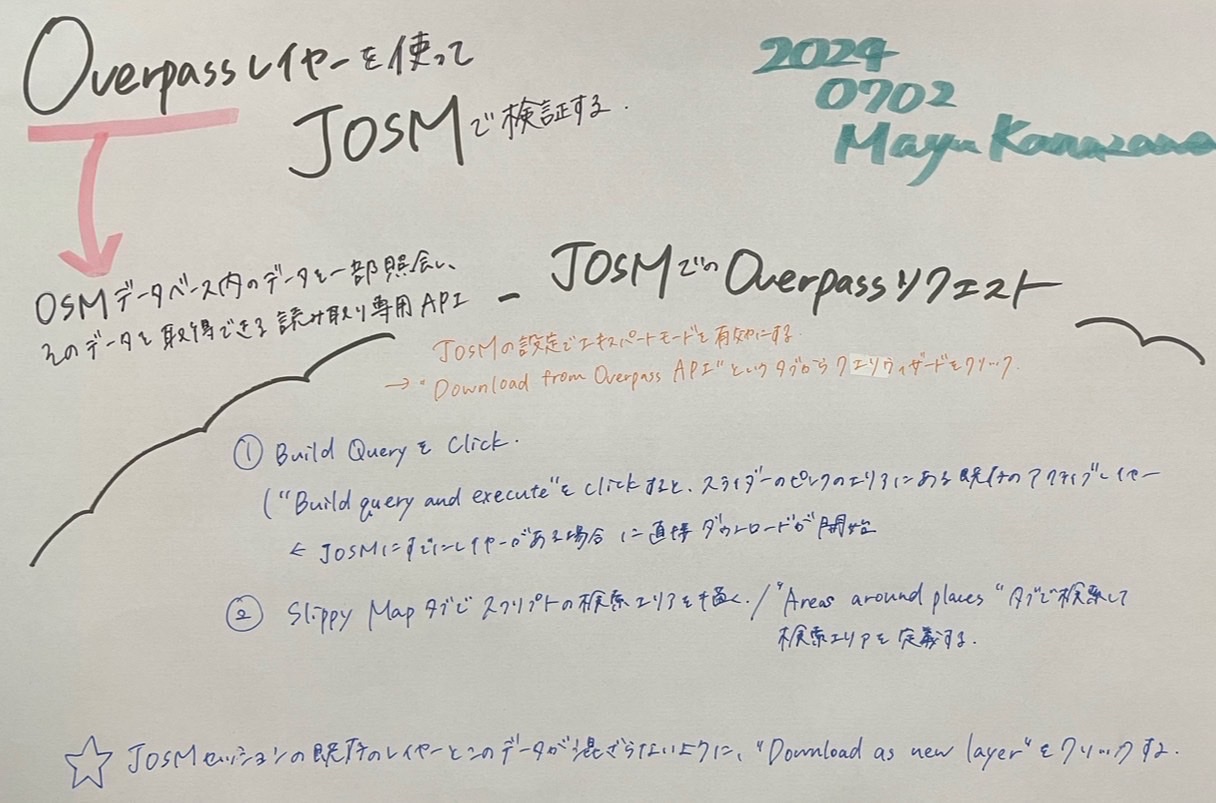 Overpassレイヤーを使って
JOSMで検証する.
2024
0702
Mayu
OSMデータベース内のデータを一部照会し、
そのデータを取得できる読み取り専用API
- JOSMでのOverpassリクエスト
JOSMの設定でエキスパートモードを有効にする.
→ "Download from Overpass API" というタブからクエリウィザードをクリック.
① Build Queryを Click.
("Build query and execute"を clickすると、スライダーのピンクのエリアにある既存のアクティブレイヤー
← JOSMにすでにレイヤーがある場合 に直接 ダウンロードが開始
② Slippy Mapタブで スクリプトの検索エリアを描く. / "Areas around places" タブで検索して
検索エリアを 定義する.
☆ JOSMセッションの既存のレイヤーとこのデータが混ざらないように、"Download as new layer"をクリックする.